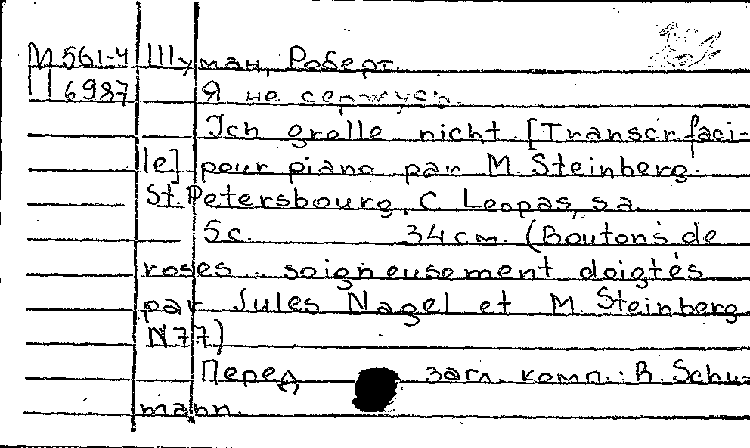 М 561-4 Шуман, Роберт.
6987 Я не сержусь.
Ich grolle nicht [Transcr. faci-
le] pour piano par M. Steinberg.
St. Petersbourg, C. Leopas, s.a.
5 c. 34 cm. (Boutons de
roses .. soigneusement doigtés
par Jules Nagel et M. Steinberg
N 77)
Перед загл. комп.: R. Schu-
mann.